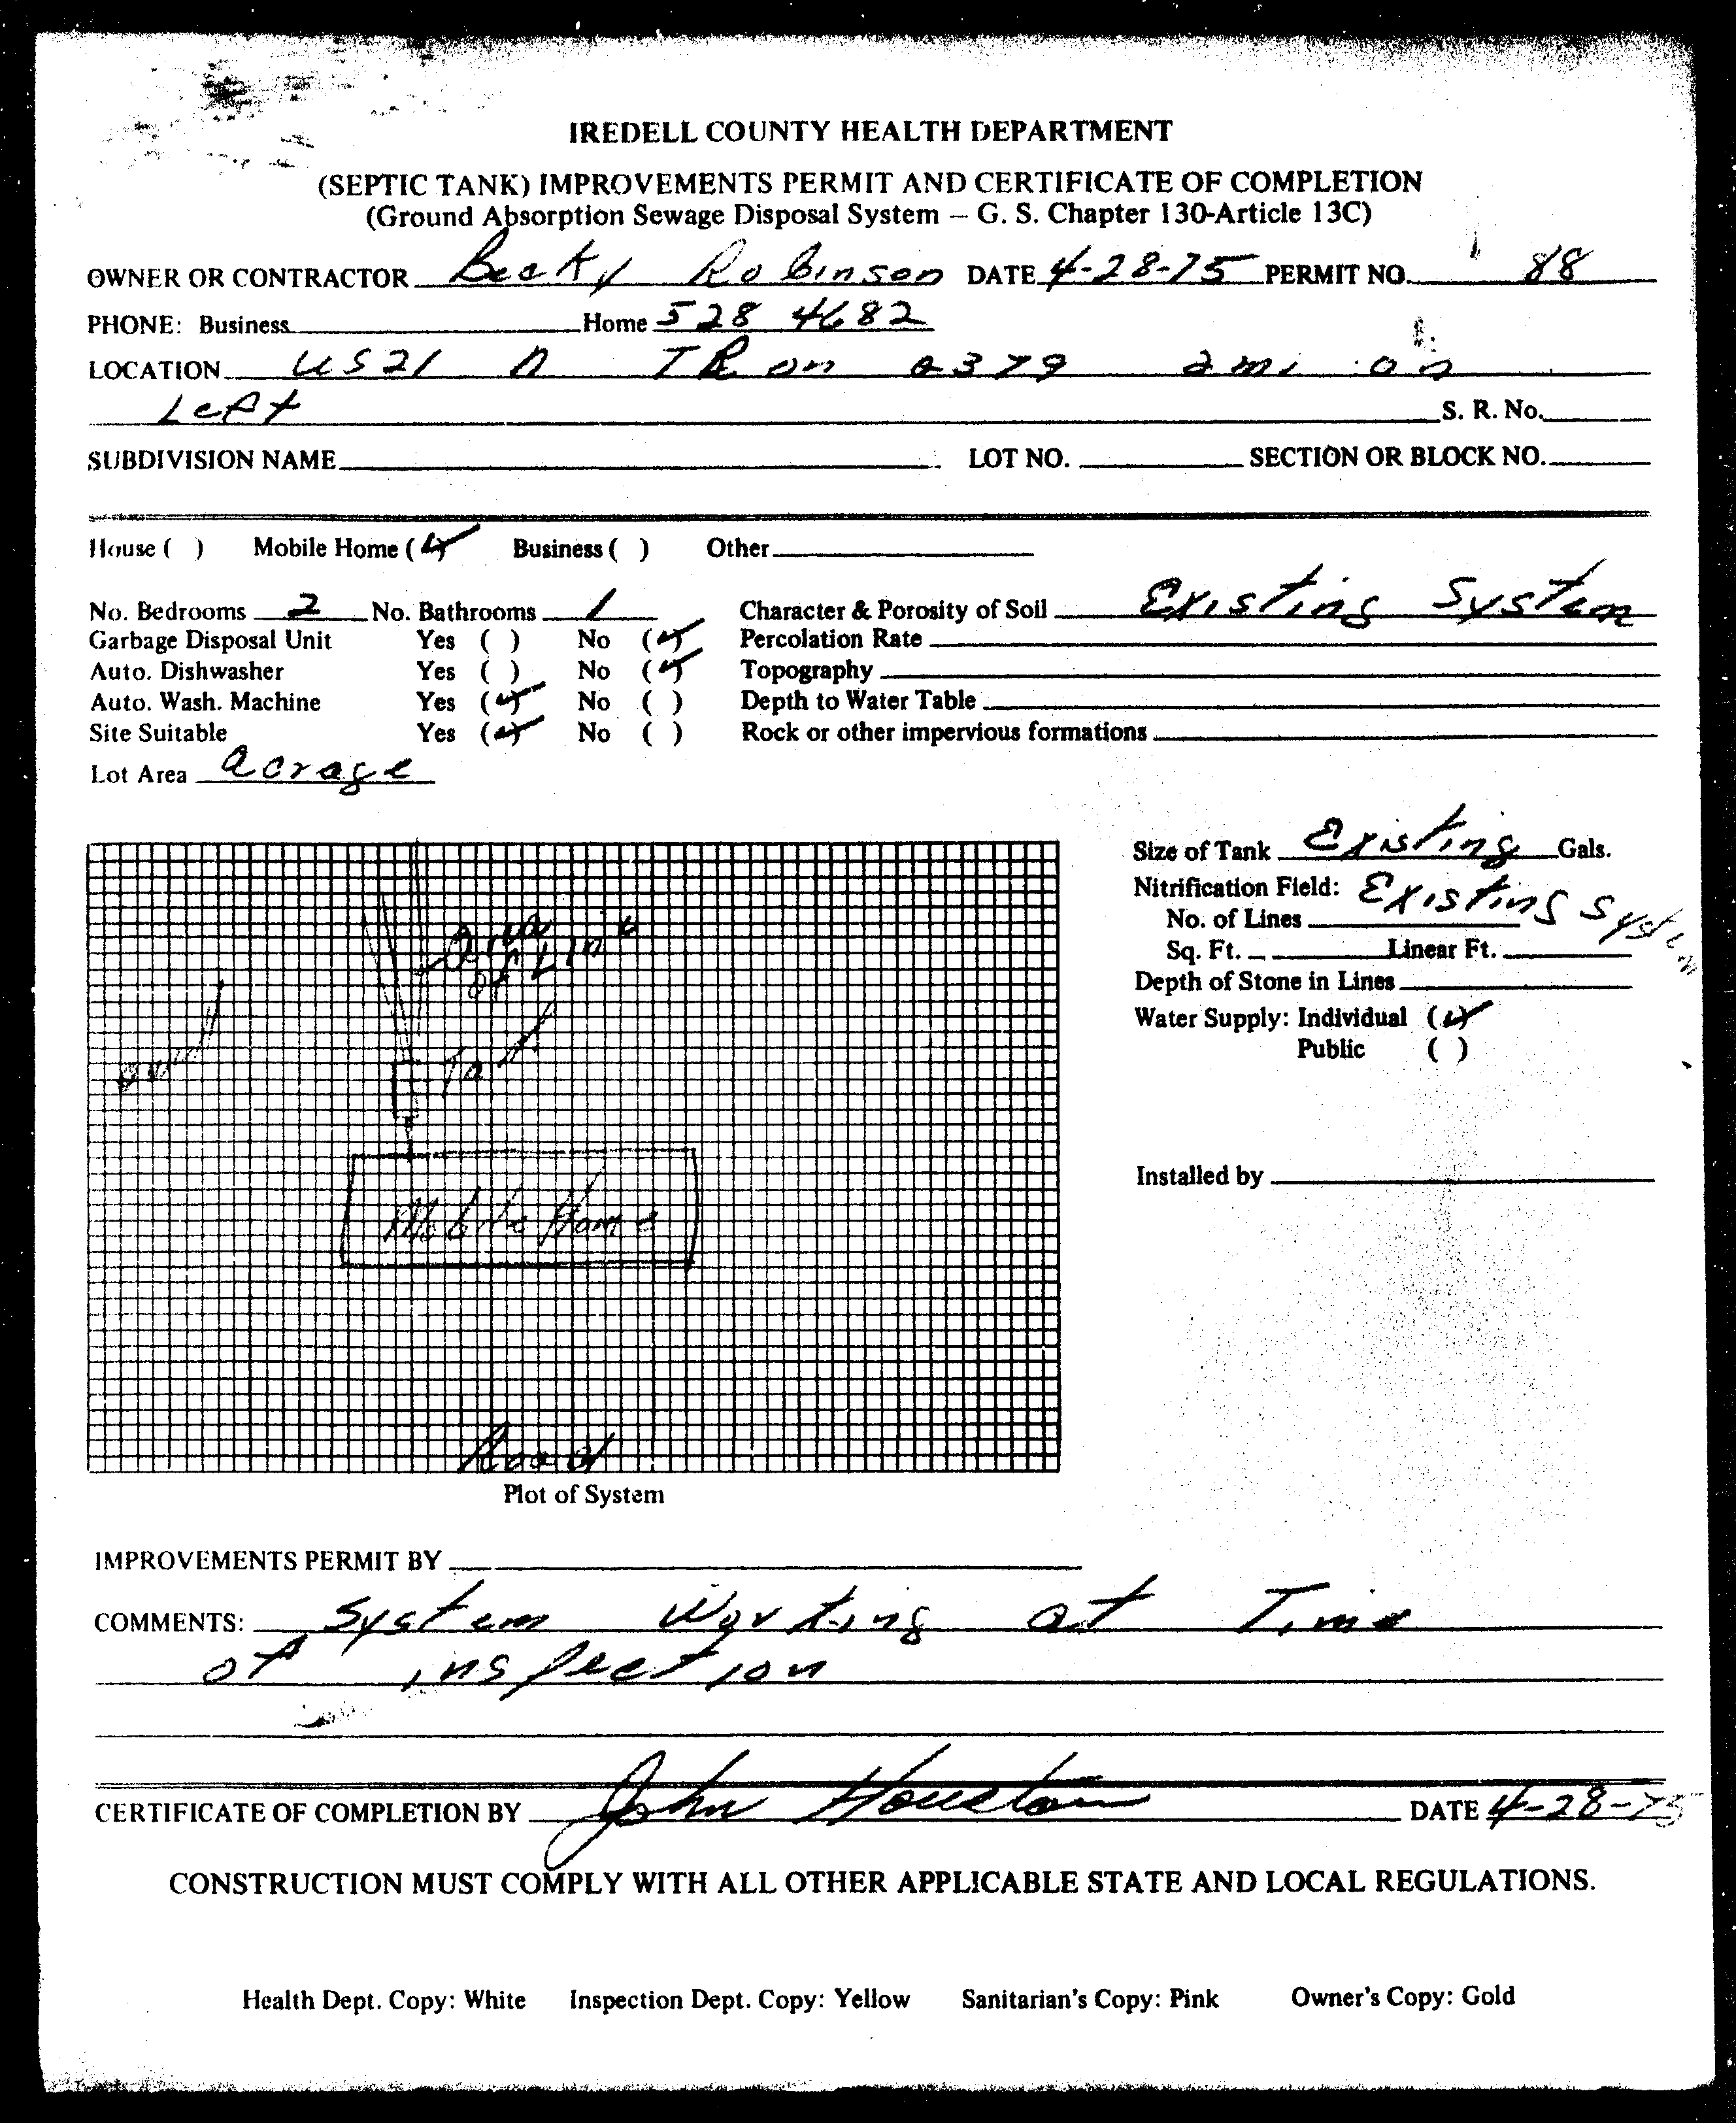 IREDELL COUNTY HEALTH DEPARTMENT
(SEPTIC TANK) IMPROVEMENTS PERMIT AND CERTIFICATE OF COMPLETION
(Ground Absorption Sewage Disposal System – G. S. Chapter 130-Article 13C)
OWNER OR CONTRACTOR Becky Robinson DATE 4-28-75 PERMIT NO. 88
PHONE: Business Home 528 4682
LOCATION US21 n TR on 2379 2 mi on
Left S. R. No.
SUBDIVISION NAME LOT NO. SECTION OR BLOCK NO.
House ( ) Mobile Home (✓) Business ( ) Other
No. Bedrooms 2 No. Bathrooms 1 Character & Porosity of Soil Existing System
Garbage Disposal Unit Yes ( ) No (✓) Percolation Rate
Auto. Dishwasher Yes ( ) No (✓) Topography
Auto. Wash. Machine Yes (✓) No ( ) Depth to Water Table
Site Suitable Yes (✓) No ( ) Rock or other impervious formations
Lot Area acrage
Size of Tank Existing Gals.
Nitrification Field: Existing System
No. of Lines
Sq. Ft. Linear Ft.
Depth of Stone in Lines
Water Supply: Individual (✓)
Public ( )
Installed by
Area
of Line
Mobile Home
Road
Plot of System
IMPROVEMENTS PERMIT BY
COMMENTS: System Working at Time
of inspection
CERTIFICATE OF COMPLETION BY John Houston DATE 4-28-75
CONSTRUCTION MUST COMPLY WITH ALL OTHER APPLICABLE STATE AND LOCAL REGULATIONS.
Health Dept. Copy: White Inspection Dept. Copy: Yellow Sanitarian's Copy: Pink Owner's Copy: Gold